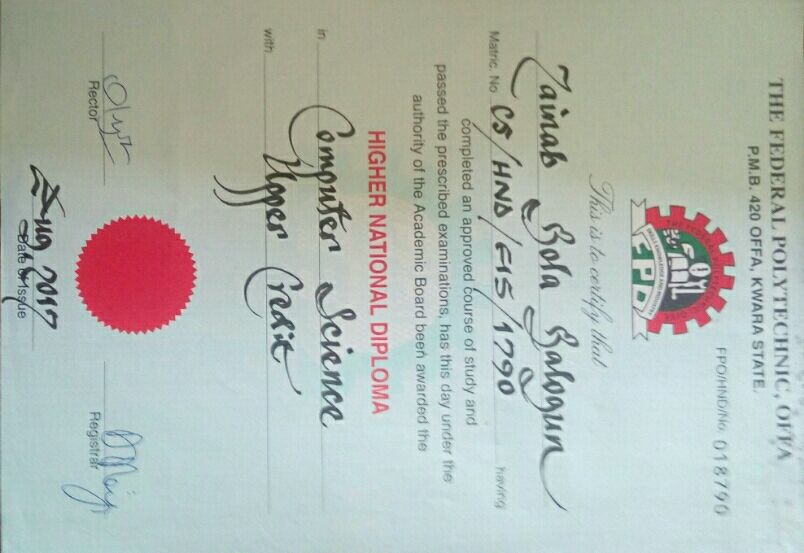 THE FEDERAL POLYTECHNIC, OFFA
P.M.B. 420 OFFA, KWARA STATE.
FPO/HND/No. 018790
FPO
This is to certify that
Zainab Bola Balogun
Matric. No. CS/HND/F15/1790 having
completed an approved course of study and
passed the prescribed examinations, has this day under the
authority of the Academic Board been awarded the
HIGHER NATIONAL DIPLOMA
in Computer Science
with Upper Credit
Rector
Registrar
Aug 2017
Date of Issue